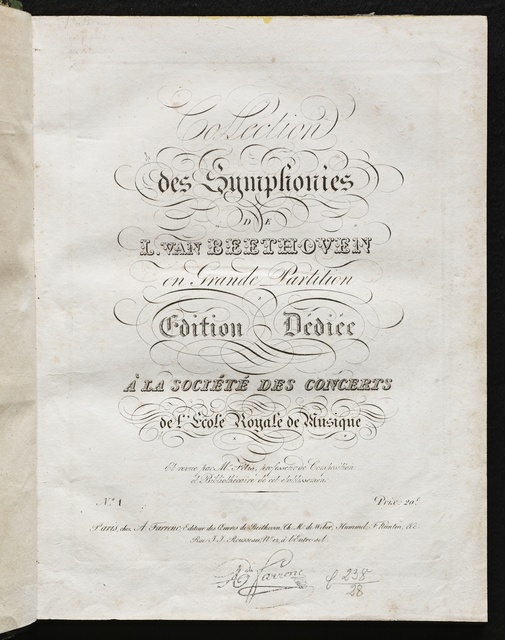 Collection
des Symphonies
DE
L. VAN BEETHOVEN
en Grande Partition
Edition Dédiée
À LA SOCIÉTÉ DES CONCERTS
de l'École Royale de Musique
Et revue par Mr. Fétis, professeur de Composition
et Bibliothécaire de cet établissement
No. 1 Prix: 20f.
Paris, chez A. Farrenc, Editeur des Œuvres de Beethoven, Ch. M. de Weber, Hummel, F. Hünten, &c.
Rue J. J. Rousseau, No. 21, à l'Entresol.
Farrenc
238
28